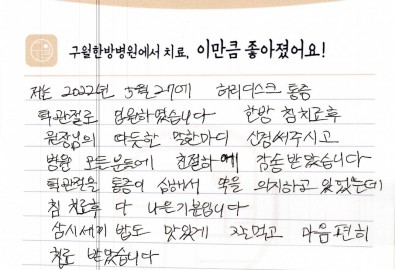 구월한방병원에서 치료, 이만큼 좋아졌어요!
저는 2022년 5월 27에 허리디스크 통증
턱관절로 입원하였습니다 한방 침치료후
원장님의 따듯한 말한마디 신경써주시고
병원 모든분들에 친절하에 감송받았습니다
턱관절은 통증이 심해서 죽을 의지하고 있었는데
침 치료후 다 나은기분입니다
삼시세끼 밥도 맛있게 잘먹고 마음 편히
치료 받았습니다